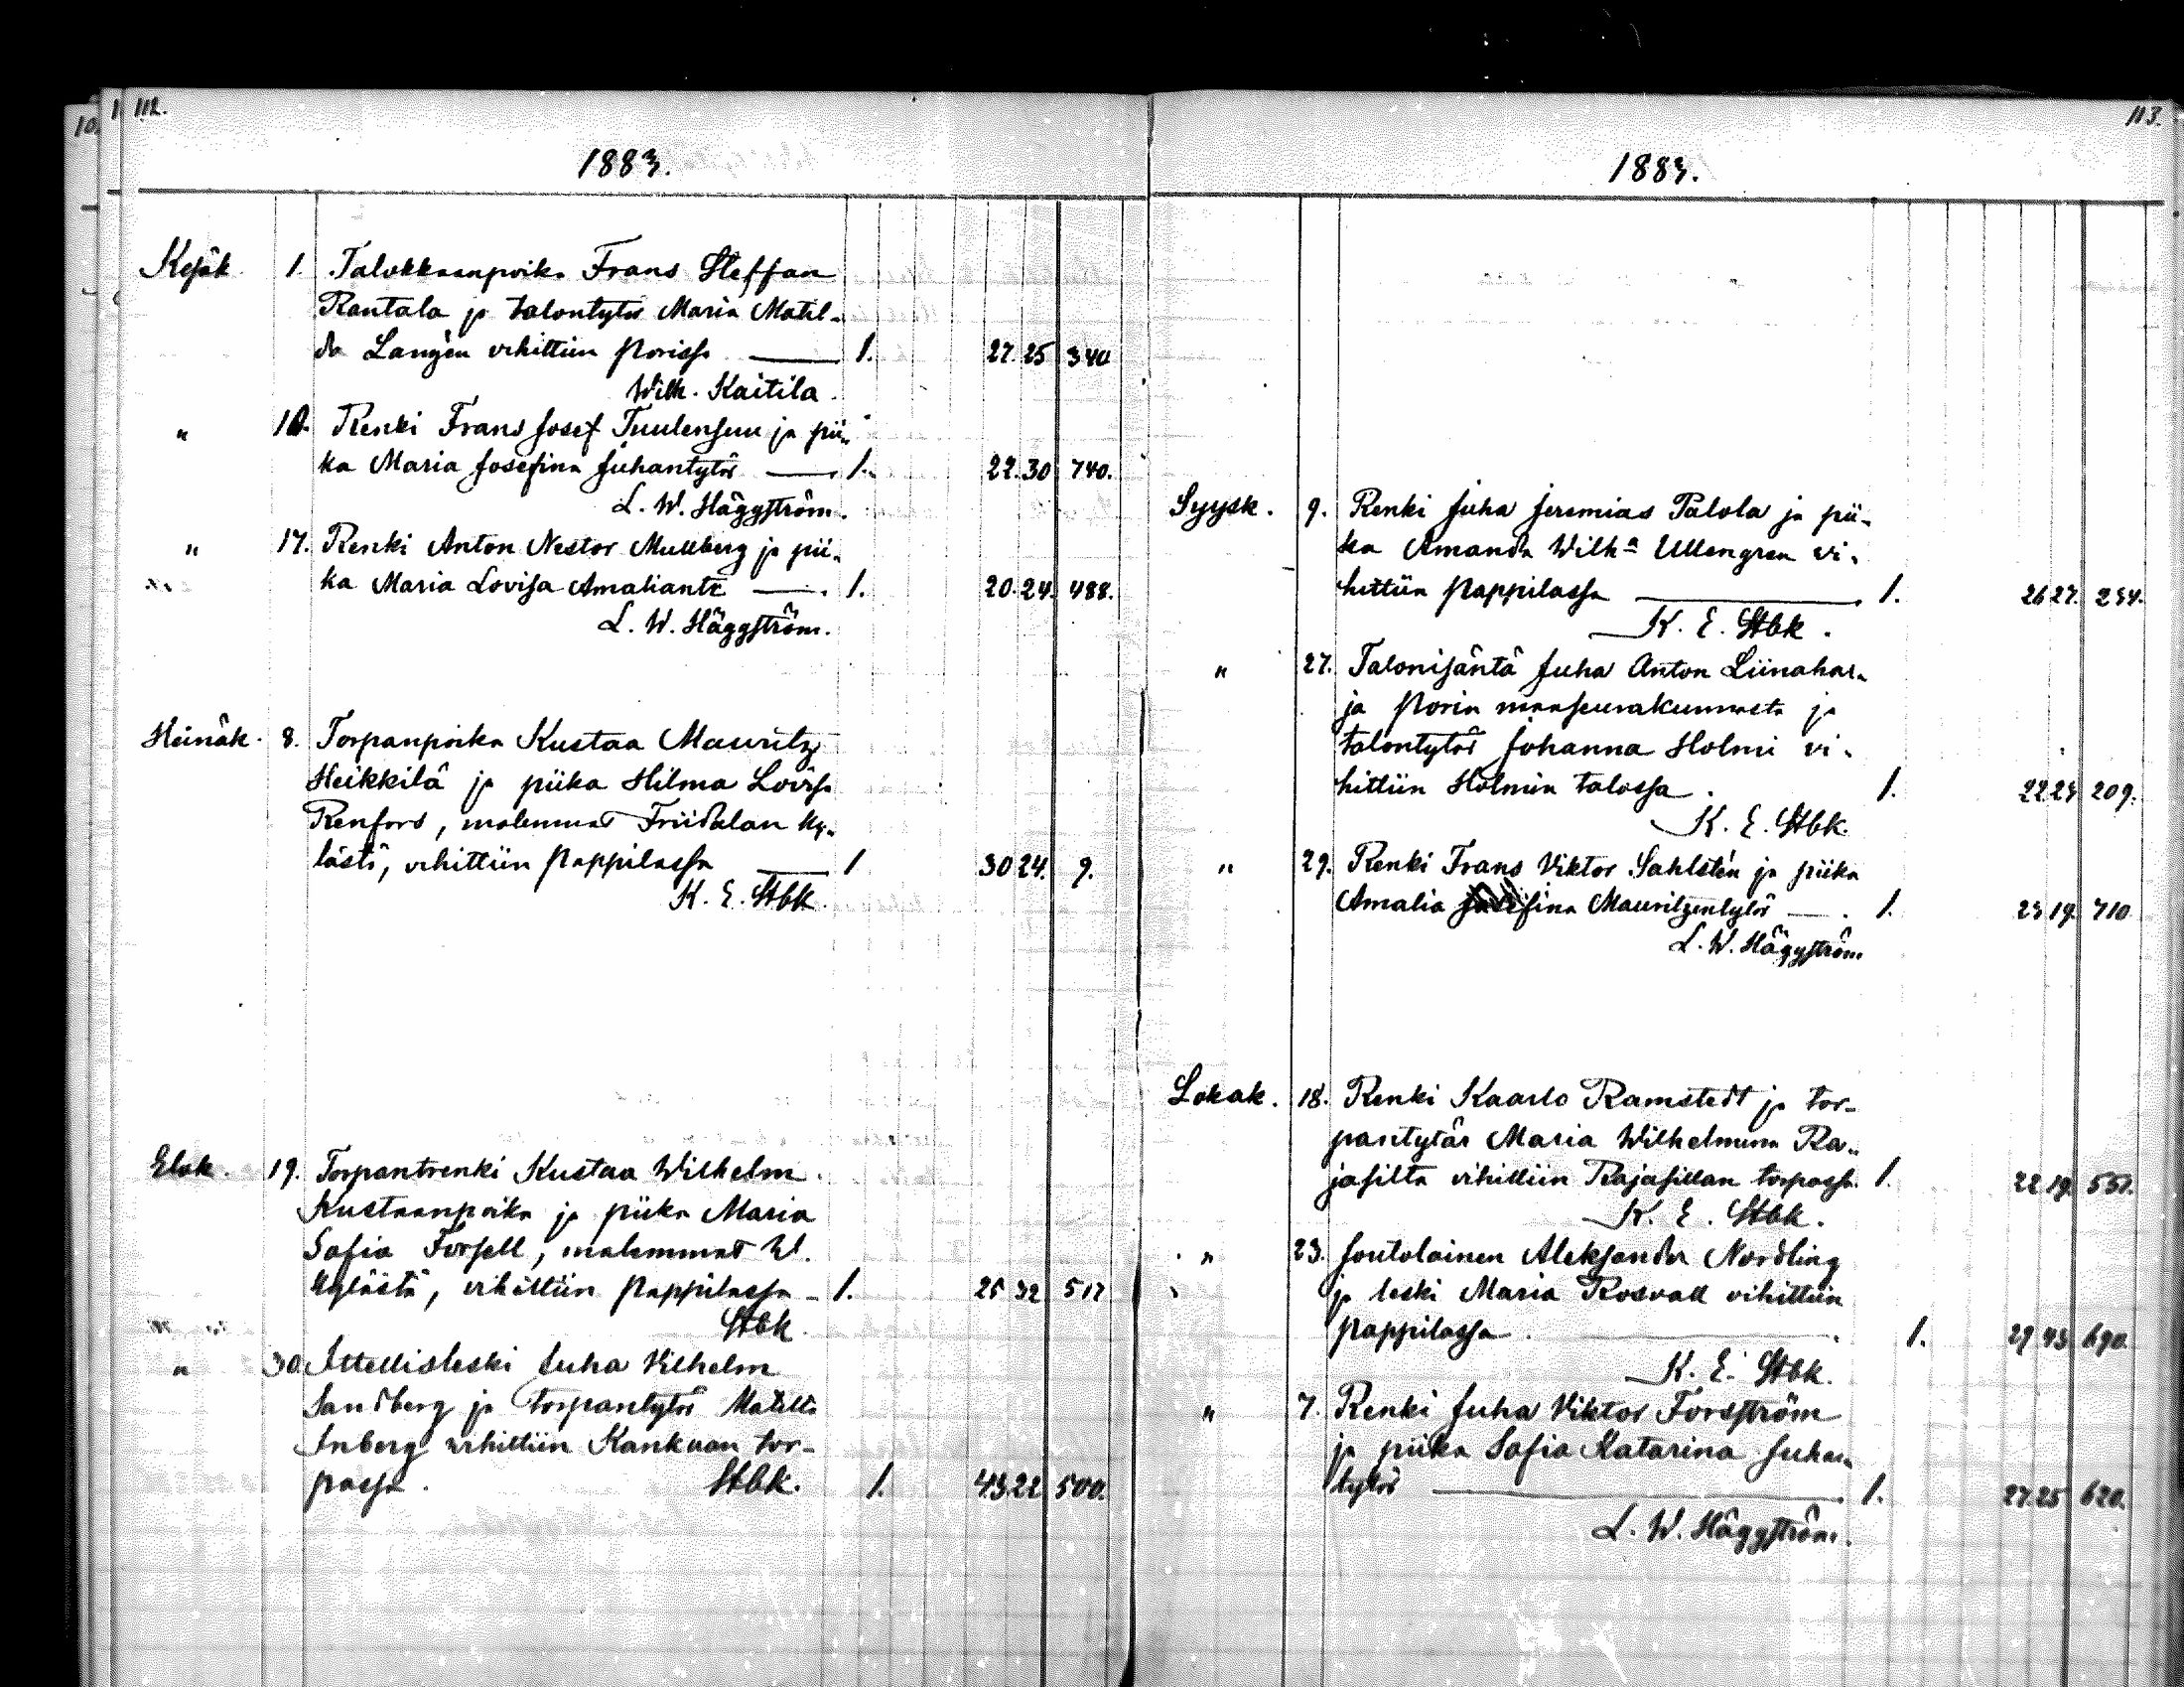 112.
1883.
Kesäk. 1. Talokkaanpoika Frans Steffan
Rantala ja talontytär Maria Matil-
da Langén vihittiin Porissa — 1. 27. 25 340
Wilh. Kaitila.
" 10. Renki Frans Josef Tuulensuu ja pii-
ka Maria Josefina Juhantytär — 1. 22. 30 740.
L. W. Häggström.
" 17. Renki Anton Nestor Mullberg ja pii-
ka Maria Lovisa Amaliantr — 1. 20. 24. 488.
L. W. Häggström.
Heinäk. 8. Torpanpoika Kustaa Mauritz
Heikkilä ja piika Hilma Lovisa
Renfors, molemmat Friidalan ky-
lästä, vihittiin Pappilassa — 1 30 24. 9.
K. E. Stbk.
Elok. 19. Torpantrenki Kustaa Wilhelm
Kustaanpoika ja piika Maria
Sofia Forsell, molemmat Ul.
kylästä, vihittiin Pappilassa — 1. 25 32 517
Stbk.
" 30. Ittellisleski Juha Vilhelm
Sandberg ja torpantytär Matilda
Inberg vihittiin Kankuan tor-
passa. Stbk. 1. 43 22 500.
113.
1883.
Syysk. 9. Renki Juha Jeremias Palola ja pii-
ka Amanda Wilhª Ullengren vi-
hittiin Pappilassa — 1. 26 27. 254.
K. E. Stbk.
" 27. Talonisäntä Juha Anton Liinahar-
ja Porin maaseurakunnasta ja
talontytär Johanna Holmi vi-
hittiin Holmin talossa. 1. 22 23 209.
K. E. Stbk.
" 29. Renki Frans Viktor Sahlstén ja piika
Amalia Josefina Mauritzentytär — 1. 23 19. 710
L. W. Häggström
Lokak. 18. Renki Kaarlo Ramstedt ja tor-
pantytär Maria Wilhelmina Ra-
jasilta vihittiin Rajasillan torpassa. 1. 22 19. 551.
K. E. Stbk.
" 23. Joutolainen Aleksander Nordling
ja leski Maria Rosvall vihittiin
Pappilassa. — 1. 29 43 690.
K. E. Stbk.
" 7. Renki Juha Viktor Forsström
ja piika Sofia Katarina Juhan-
tytär — 1. 27 25 620.
L. W. Häggström.